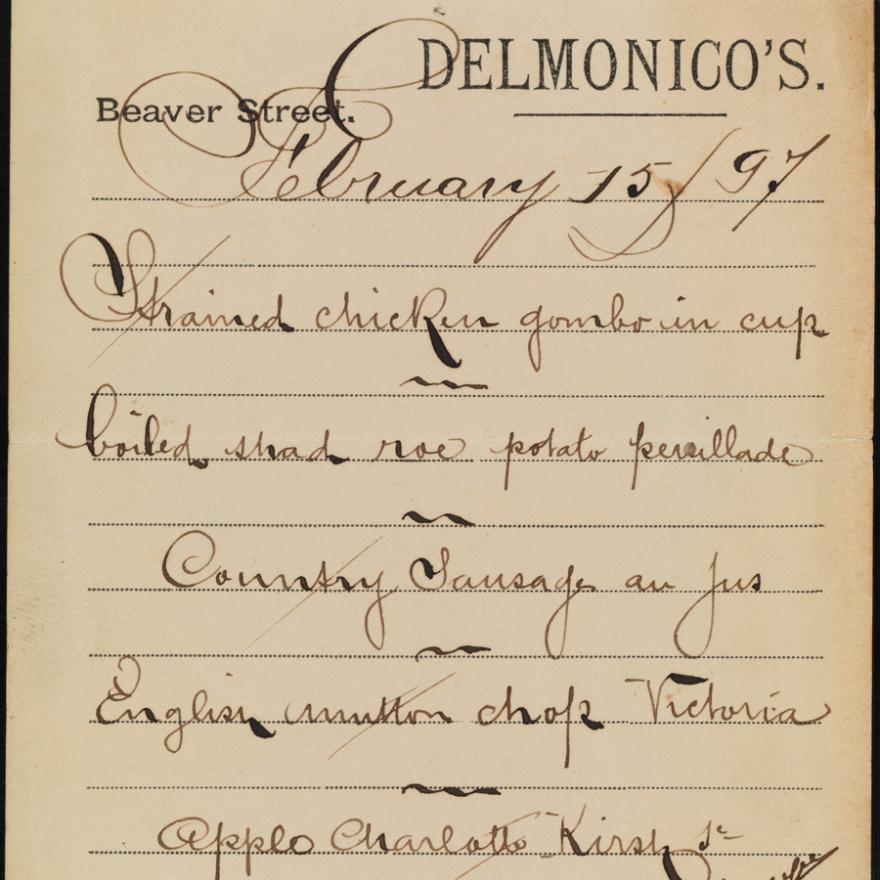 DELMONICO'S.
Beaver Street.
February 15/97
Strained chicken gombo in cup
boiled shad roe potato persillade
Country Sausage au jus
English mutton chop Victoria
Apple Charlotte Kirsh